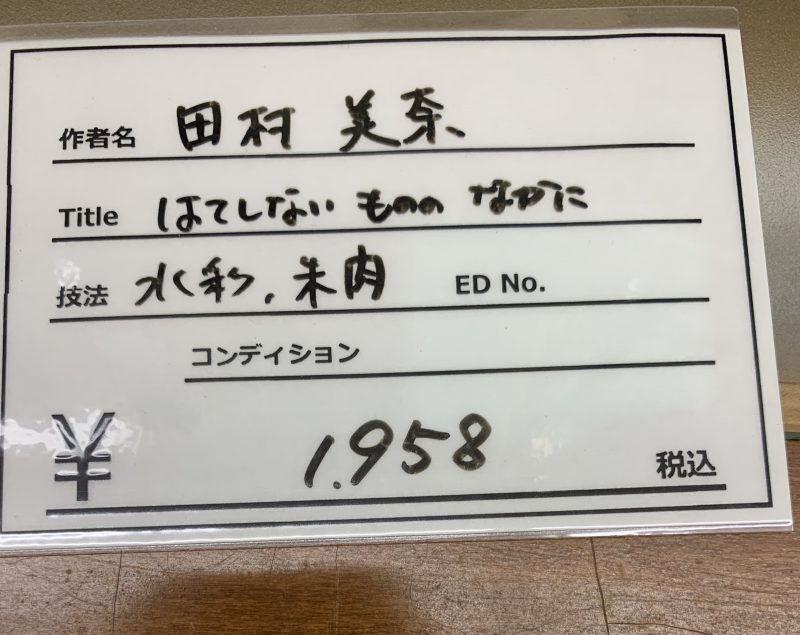 作者名 田村 美奈
Title はてしない ものの なかに
技法 水彩, 朱肉 ED No.
コンディション
¥ 1.958 税込